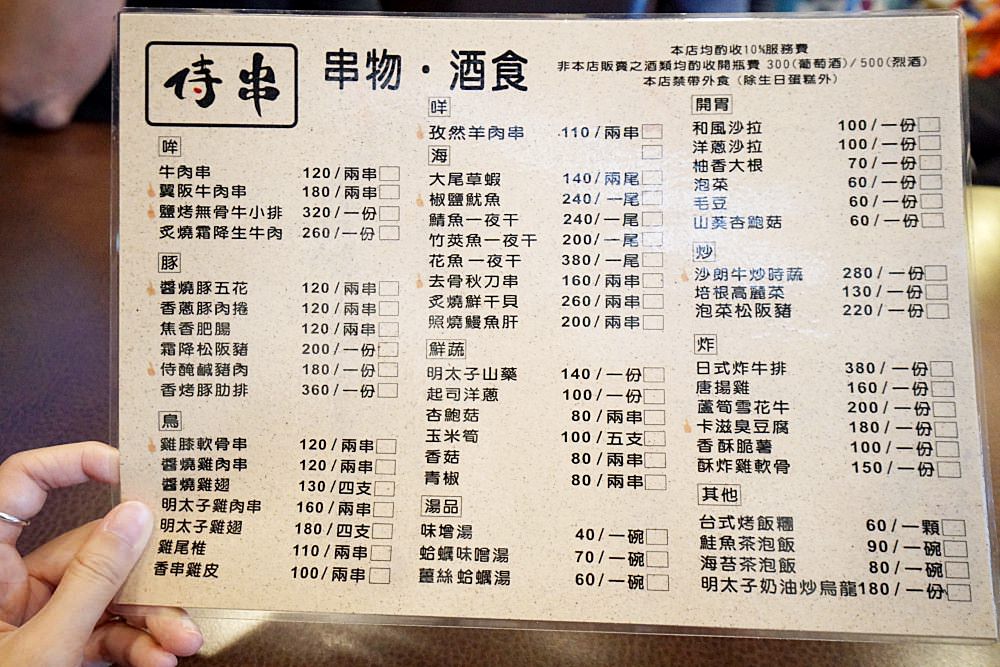 侍串
串物・酒食
本店均酌收10%服務費
非本店販賣之酒類均酌收開瓶費 300(葡萄酒)/500(烈酒)
本店禁帶外食（除生日蛋糕外）
哞
牛肉串 120/兩串
翼阪牛肉串 180/兩串
鹽烤無骨牛小排 320/一份
炙燒霜降生牛肉 260/一份
豚
醬燒豚五花 120/兩串
香蔥豚肉捲 120/兩串
焦香肥腸 120/兩串
霜降松阪豬 200/一份
侍醃鹹豬肉 180/一份
香烤豚肋排 360/一份
鳥
雞膝軟骨串 120/兩串
醬燒雞肉串 120/兩串
醬燒雞翅 130/四支
明太子雞肉串 160/兩串
明太子雞翅 180/四支
雞尾椎 110/兩串
香串雞皮 100/兩串
咩
孜然羊肉串 110/兩串
海
大尾草蝦 140/兩尾
椒鹽魷魚 240/一尾
鯖魚一夜干 240/一尾
竹莢魚一夜干 200/一尾
花魚一夜干 380/一尾
去骨秋刀串 160/兩串
炙燒鮮干貝 260/兩串
照燒鰻魚肝 200/兩串
鮮蔬
明太子山藥 140/一份
起司洋蔥 100/一份
杏鮑菇 80/兩串
玉米筍 100/五支
香菇 80/兩串
青椒 80/兩串
湯品
味噌湯 40/一碗
蛤蠣味噌湯 70/一碗
薑絲蛤蠣湯 60/一碗
開胃
和風沙拉 100/一份
洋蔥沙拉 100/一份
柚香大根 70/一份
泡菜 60/一份
毛豆 60/一份
山葵杏鮑菇 60/一份
炒
沙朗牛炒時蔬 280/一份
培根高麗菜 130/一份
泡菜松阪豬 220/一份
炸
日式炸牛排 380/一份
唐揚雞 160/一份
蘆筍雪花牛 200/一份
卡滋臭豆腐 180/一份
香酥脆薯 100/一份
酥炸雞軟骨 150/一份
其他
台式烤飯糰 60/一顆
鮭魚茶泡飯 90/一碗
海苔茶泡飯 80/一碗
明太子奶油炒烏龍180/一份